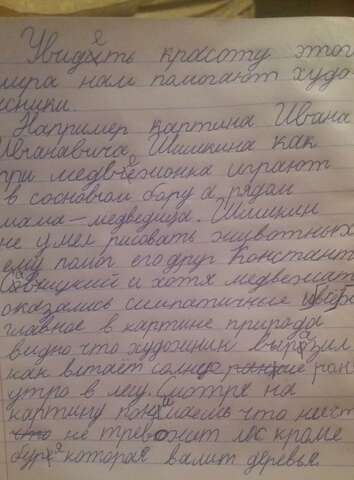 Увидять красоту этого
мира нам помогают худо
жники.
Например картина Ивана
Иванавича Шишкина как
при медвежонка играют
в сосновом бору а рядам
мама – медведица. Шишкин
не умел рисовать животных
ему помог его друг Констант
и хотя медвежат
оказались симпатичные
главное в картине природа
видно что художник выразил
как встает солнце ран
утро в лесу. Смотря на
картину понимаешь что ничт
не тревожит лес кроме
буря которая валит деревья.